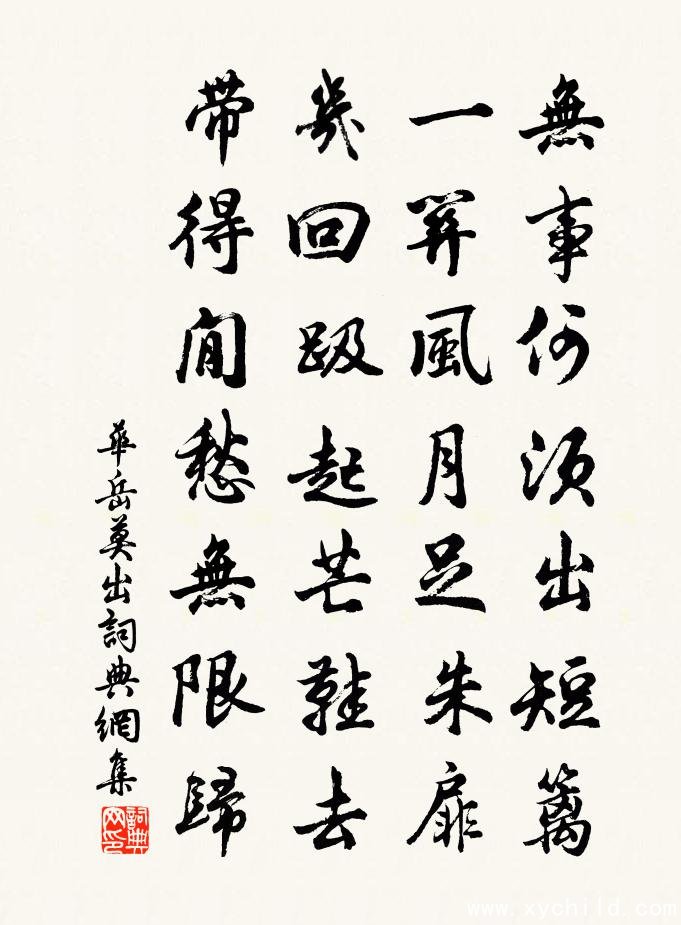 無事何須出短籬
一風月足朱扉
幾回趿起芒鞋去
帶得閒愁無限歸
華岳莫出詞典網集
詞典网印
www.xychild.com